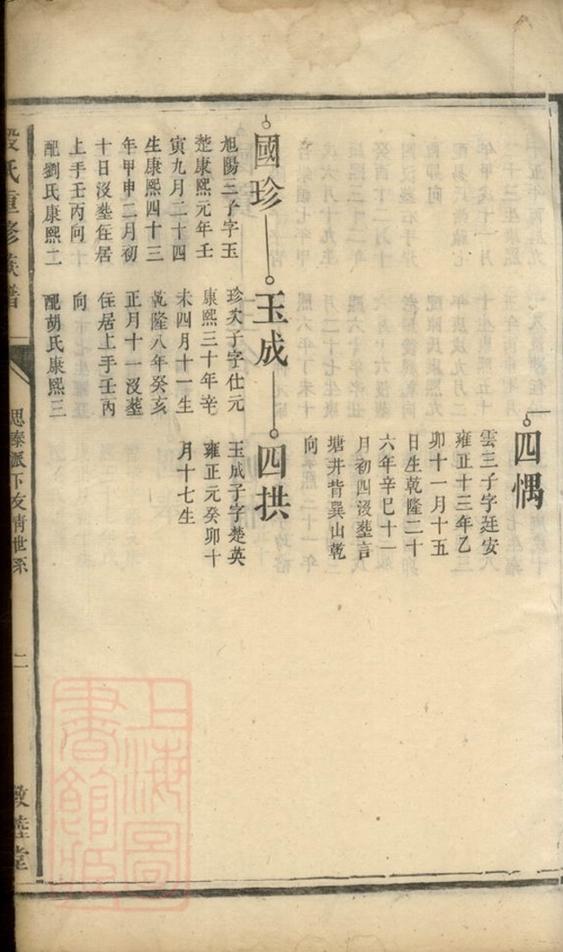 四惆
雲三子字廷安
雍正十三年乙
卯十一月十五
日生乾隆二十
六年辛巳十一
月初四沒塟言
塘井背巽山乾
向
國珍
旭陽二子字玉
楚康熙元年壬
寅九月二十四
生康熙四十三
年甲申二月初
十日沒塟在居
上手壬丙向
配劉氏康熙二
玉成
珍次子字仕元
康熙三十年辛
未四月十一生
乾隆八年癸亥
正月十一沒塟
在居上手壬丙
向
配胡氏康熙三
四拱
玉成子字楚英
雍正元癸卯十
月十七生
氏重修族譜
思秦派下友情世系
二
敦睦堂
上海圖書館藏